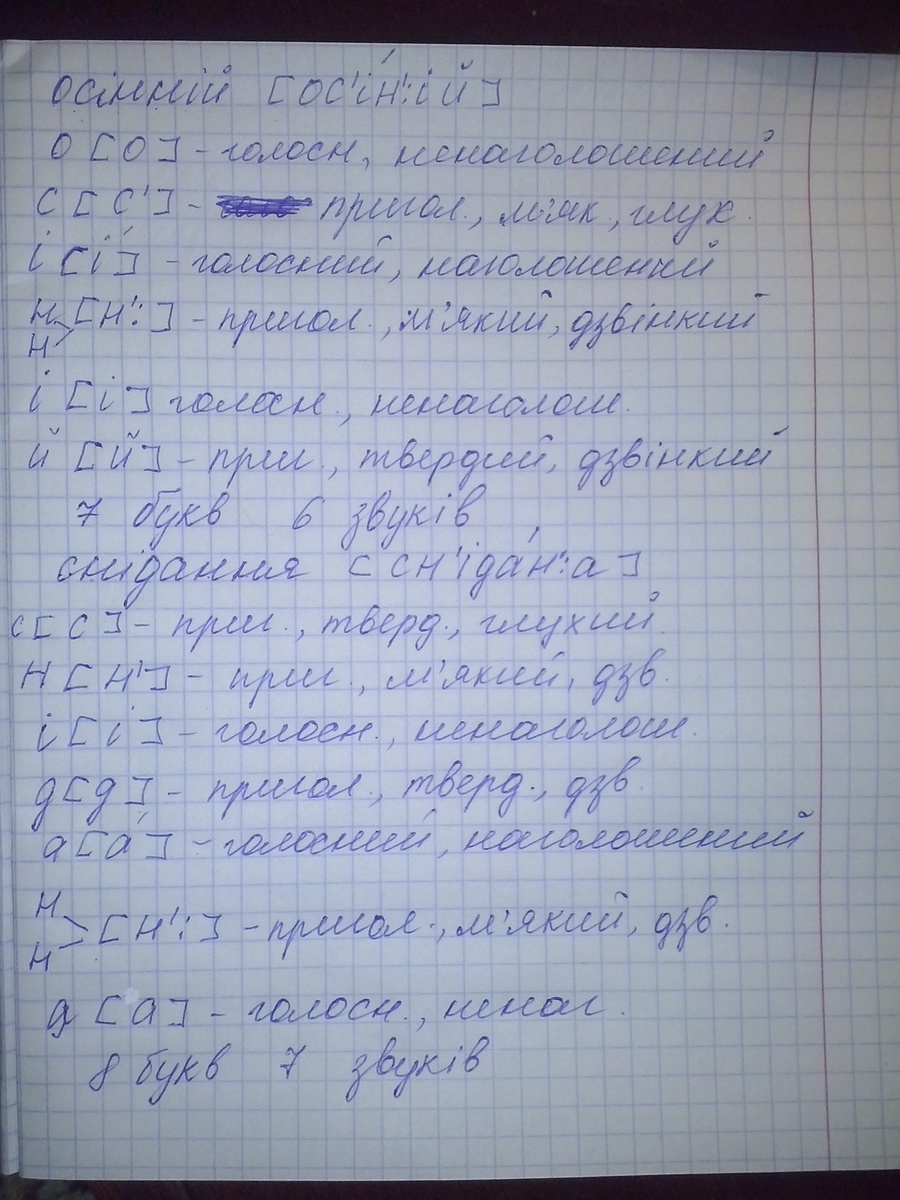 осінній [ОС'ІН':ІЙ]
о [О] - голосн, ненаголошений
с [С'] - пригол., м'як., глук.
і [і́] - голосний, наголошений
н н [Н':] - пригол., м'який, дзвінкий
і [і] голосн., ненаголош.
й [Й] - приг., твердий, дзвінкий
7 букв 6 звуків
снідання [СН'іда́н':а]
с [С] - приг., тверд., глухий.
н [Н'] - приг., м'який, дзв.
і [і] - голосн., ненаголош.
д [д] - пригол., тверд., дзв.
а [а́] - голосний, наголошений
н н [Н':] - пригол., м'який, дзв.
я [а] - голосн., ненаг.
8 букв 7 звуків